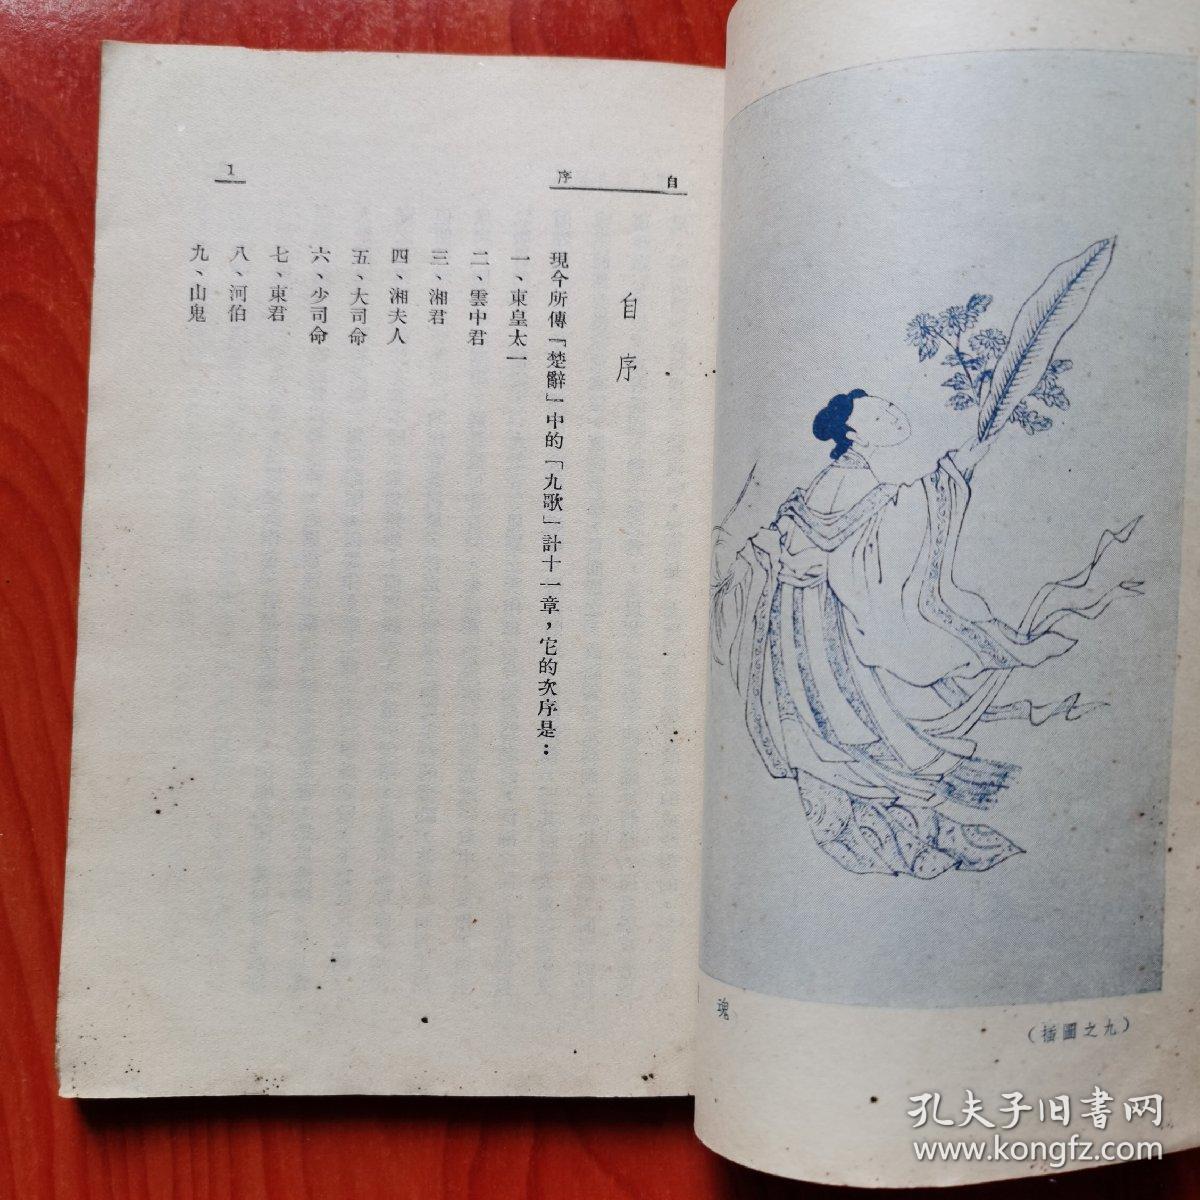 自序
1
自序
現今所傳「楚辭」中的「九歌」計十一章，它的次序是：
一、東皇太一
二、雲中君
三、湘君
四、湘夫人
五、大司命
六、少司命
七、東君
八、河伯
九、山鬼
魂
（插圖之九）
孔夫子旧書网
www.kongfz.com